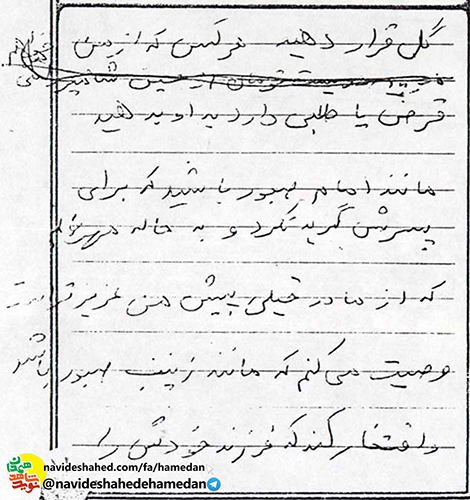 گل قرار دهید هرکس که از من
قرض یا طلبی دارد به او بدهید
مانند امام صبور باشید که برای
پسرش گریه نکرد و به خاله
که از مادر خیلی پیش من عزیزتر است
وصیت می کنم که مانند زینب صبور باشد
و افتخار کند که فرزند خودش را
navideshahed.com/fa/hamedan
@navideshahedehamedan